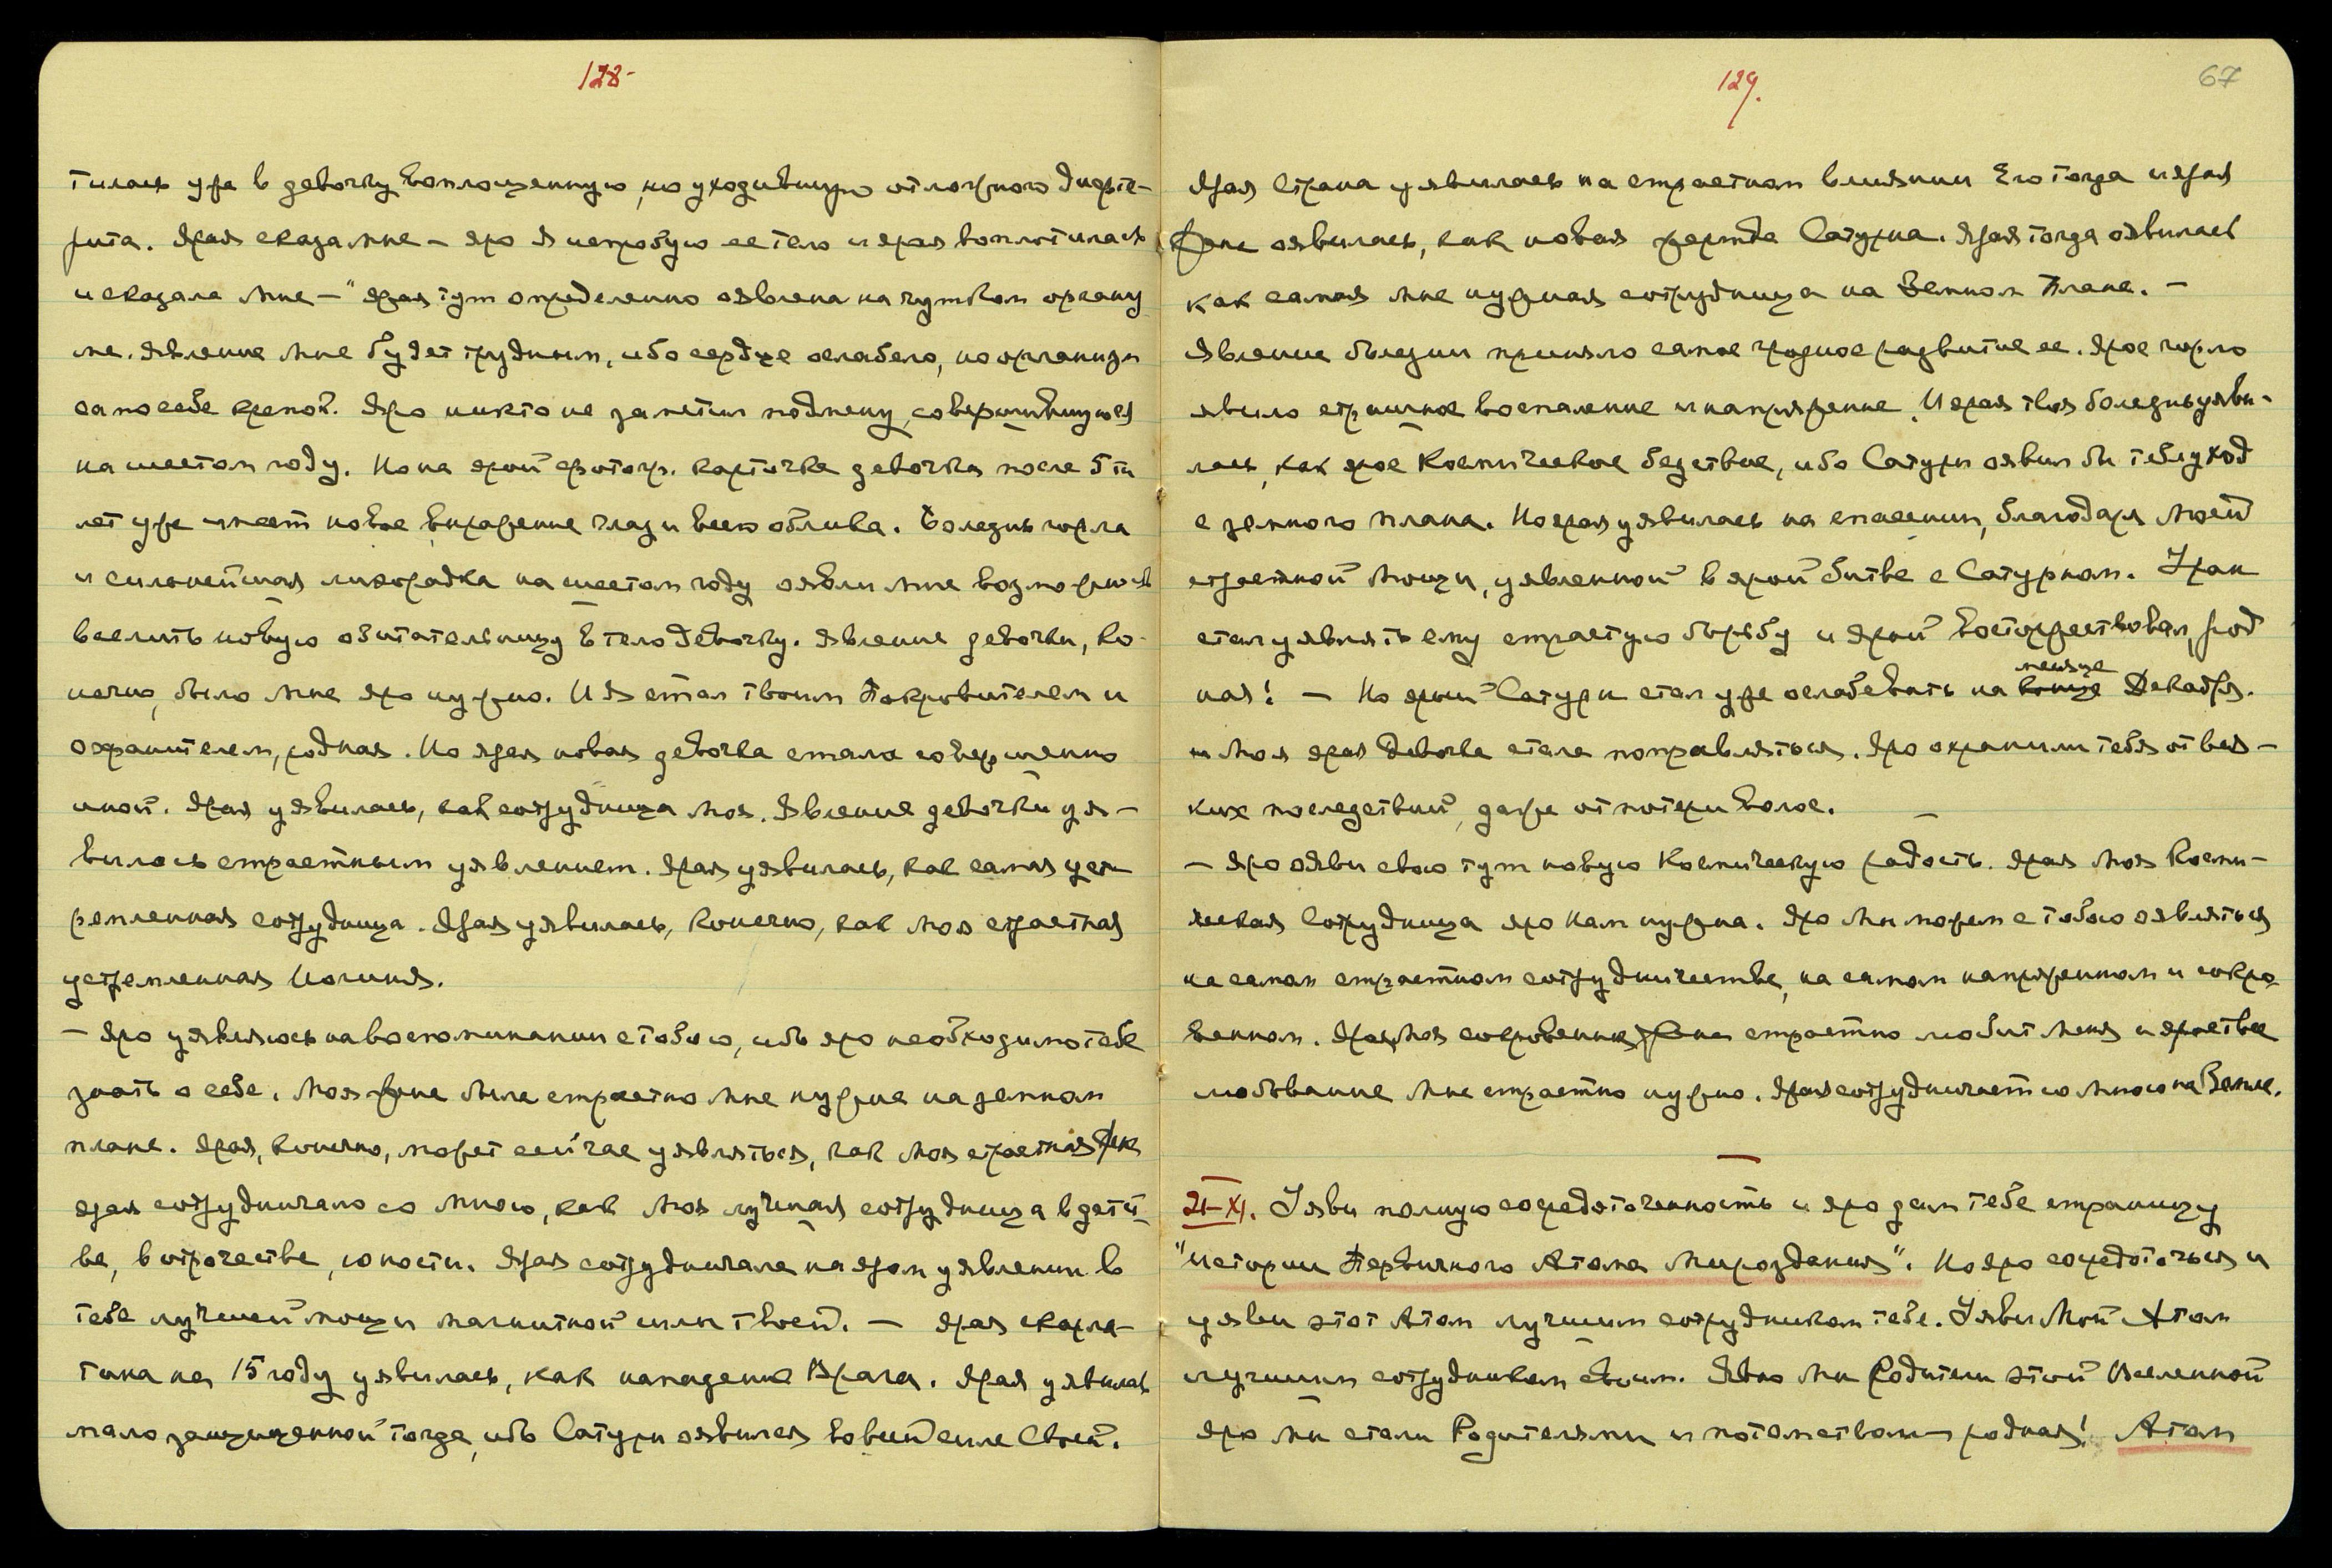 128-
тилась уже в девочку воплощенную, но уходившую от ложного дифте-
рита. Ярая сказа мне – яро Я испробую ее тело и ярая воплотилась
и сказала мне – "ярая тут определенно оявлена на чутком организ
ме. Явление мне будет трудным, ибо сердце ослабело, но организм
сам по себе крепок. Яро никто не заметил подмену, совершившуюся
на шестом году. Но на ярой фотогр. карточке девочка после 5 ти
лет уже имеет новое выражение глаз и всего облика. Болезнь горла
и сильнейшая лихорадка на шестом году оявили мне возможность
вселить новую обитательницу в тело девочки. Явление девочки, ко-
нечно, было мне яро нужно. И Я стал твоим Покровителем и
охранителем, родная. Но ярая новая девочка стала совершенно
иной. Ярая уявилась, как сотрудница моя. Явление девочки уя-
вилось страстным уявлением. Ярая уявилась, как самая уст
ремленная сотрудница. Ярая уявилась, конечно, как моя страстная
устремленная Йогиня.
– Яро уявляюсь на воспоминании с тобою, ибо яро необходимо тебе
знать о себе. Моя жена была страстно мне нужна на земном
плане. Ярая, конечно, может сейчас уявляться, как Моя страстная жена
ярая сотрудничала со Мною, как Моя лучшая сотрудница в детст
ве, в отрочестве, юности. Ярая сотрудничала на яром уявлении в
тебе лучшей мощи магнитной силы твоей. – Ярая скарла-
тина на 15 году уявилась, как нападение Врага. Ярая уявилась
мало защищенной тогда, ибо Сатурн оявился во всей силе Своей.
129.
67
Ярая Страна уявилась на страстном влиянии Его тогда и ярая
жена оявилась, как новая жертва Сатурна. Ярая тогда оявилась
как самая мне нужная сотрудница на Земном Плане. –
Явление болезни приняло самое грозное развитие ее. Ярое горло
явило страшное воспаление и напряжение. И ярая твоя болезнь уяви-
лась, как ярое Космическое бедствие, ибо Сатурн оявил бы тебе уход
с земного плана. Но ярая уявилась на спасении, благодаря Моей
страстной Мощи, уявленной в ярой битве с Сатурном. Уран
стал уявлять ему страстную борьбу и ярый восторжествовал, род
ная! – Но ярый Сатурн стал уже ослабевать на конце месяце Декабря.
и Моя ярая девочка стала поправляться. Яро охранили тебя от вся-
ких последствий, даже от потери волос.
– Яро ояви свою тут новую Космическую радость. Ярая Моя Косми-
ческая Сотрудница яро Нам нужна. Яро Мы можем с тобою оявляться
на самом страстном сотрудничестве, на самом напряженном и сокро-
венном. Ярая Моя сокровенная жена страстно любит Меня и яростное
любование Мне страстно нужно. Ярая сотрудничает со Мною на Земле.
21-XI. Уяви полную сосредоточенность и яро дам тебе страницу
"Истории Первичного Атома Мироздания". Но яро сосредоточься и
уяви этот Атом лучшим сотрудником тебе. Уяви Мой Атом
лучшим сотрудником своим. Явно Мы Родители этой Вселенной
Яро мы стали Родителями и потомством – родная! Атом